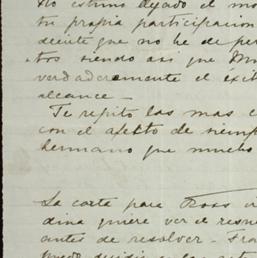 No estimo dejado el mo
tu propia participacion
decirte que no he de per
tos siendo asi que
verdaderamente el exi
alcance —
Te repito las mas e
con el afecto de siemp
hermano que mucho
La carta para Ross
dina quiere ver el resu
antes de resolver - Fra